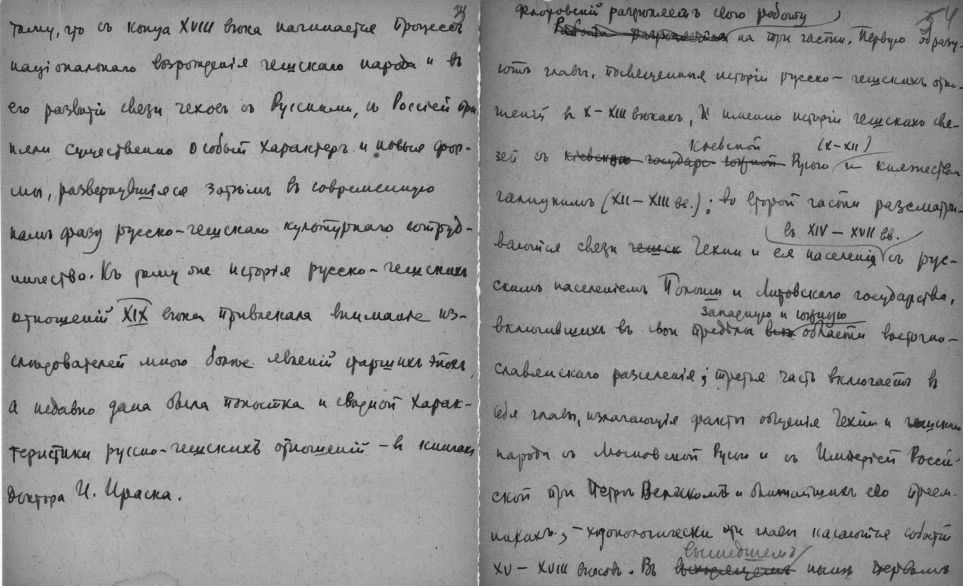 3
тому, что съ конца XVIII вѣка начинается процессъ
національнаго возрожденія чешскаго народа и въ
его развитіи связи чеховъ съ Русскими, съ Россіей прі
няли существенно особый характеръ и новыя фор-
мы, развернувшіяся затѣмъ въ современную
намъ фазу русско-чешскаго культурнаго сотруд-
ничества. Къ тому же исторія русско-чешскихъ
отношеній XIX вѣка привлекала вниманіе из-
слѣдователей много болѣе явленій старшихъ эпохъ,
а недавно дана была попытка и сводной харак-
теристики русско-чешскихъ отношеній – въ книгахъ
доктора И. Ираска.
4
Флоровскій раздѣляетъ свою работу
Работа раздѣляется на три части. Первую образу-
ютъ главы, посвященныя исторіи русско-чешскихъ отно-
шеній въ X-XIII вѣкахъ, и именно исторіи чешскихъ свя-
Кіевской (X-XII)
зей съ кіевскимъ государс южной Русью и княжествомъ
галицкимъ (XII-XIII вв.); во второй части разсматри-
въ XIV-XVII вв.
ваются связи чешск Чехіи и ея населенія съ рус-
скимъ населеніемъ Польши и Литовскаго государства,
западную и южную
включившихъ въ свои предѣлы области восточно-
славянскаго разселенія; третья часть включаетъ въ
себя главы, излагающія факты общенія Чехіи и чешскаго
народа съ Московской Русью и съ Имперіей Россій-
ской при Петрѣ Великомъ и ближайшихъ его преем-
никахъ, – хронологически эти главы касаются событій
XV-XVIII вѣковъ. Въ
вышедшемъ
нынѣ первомъ